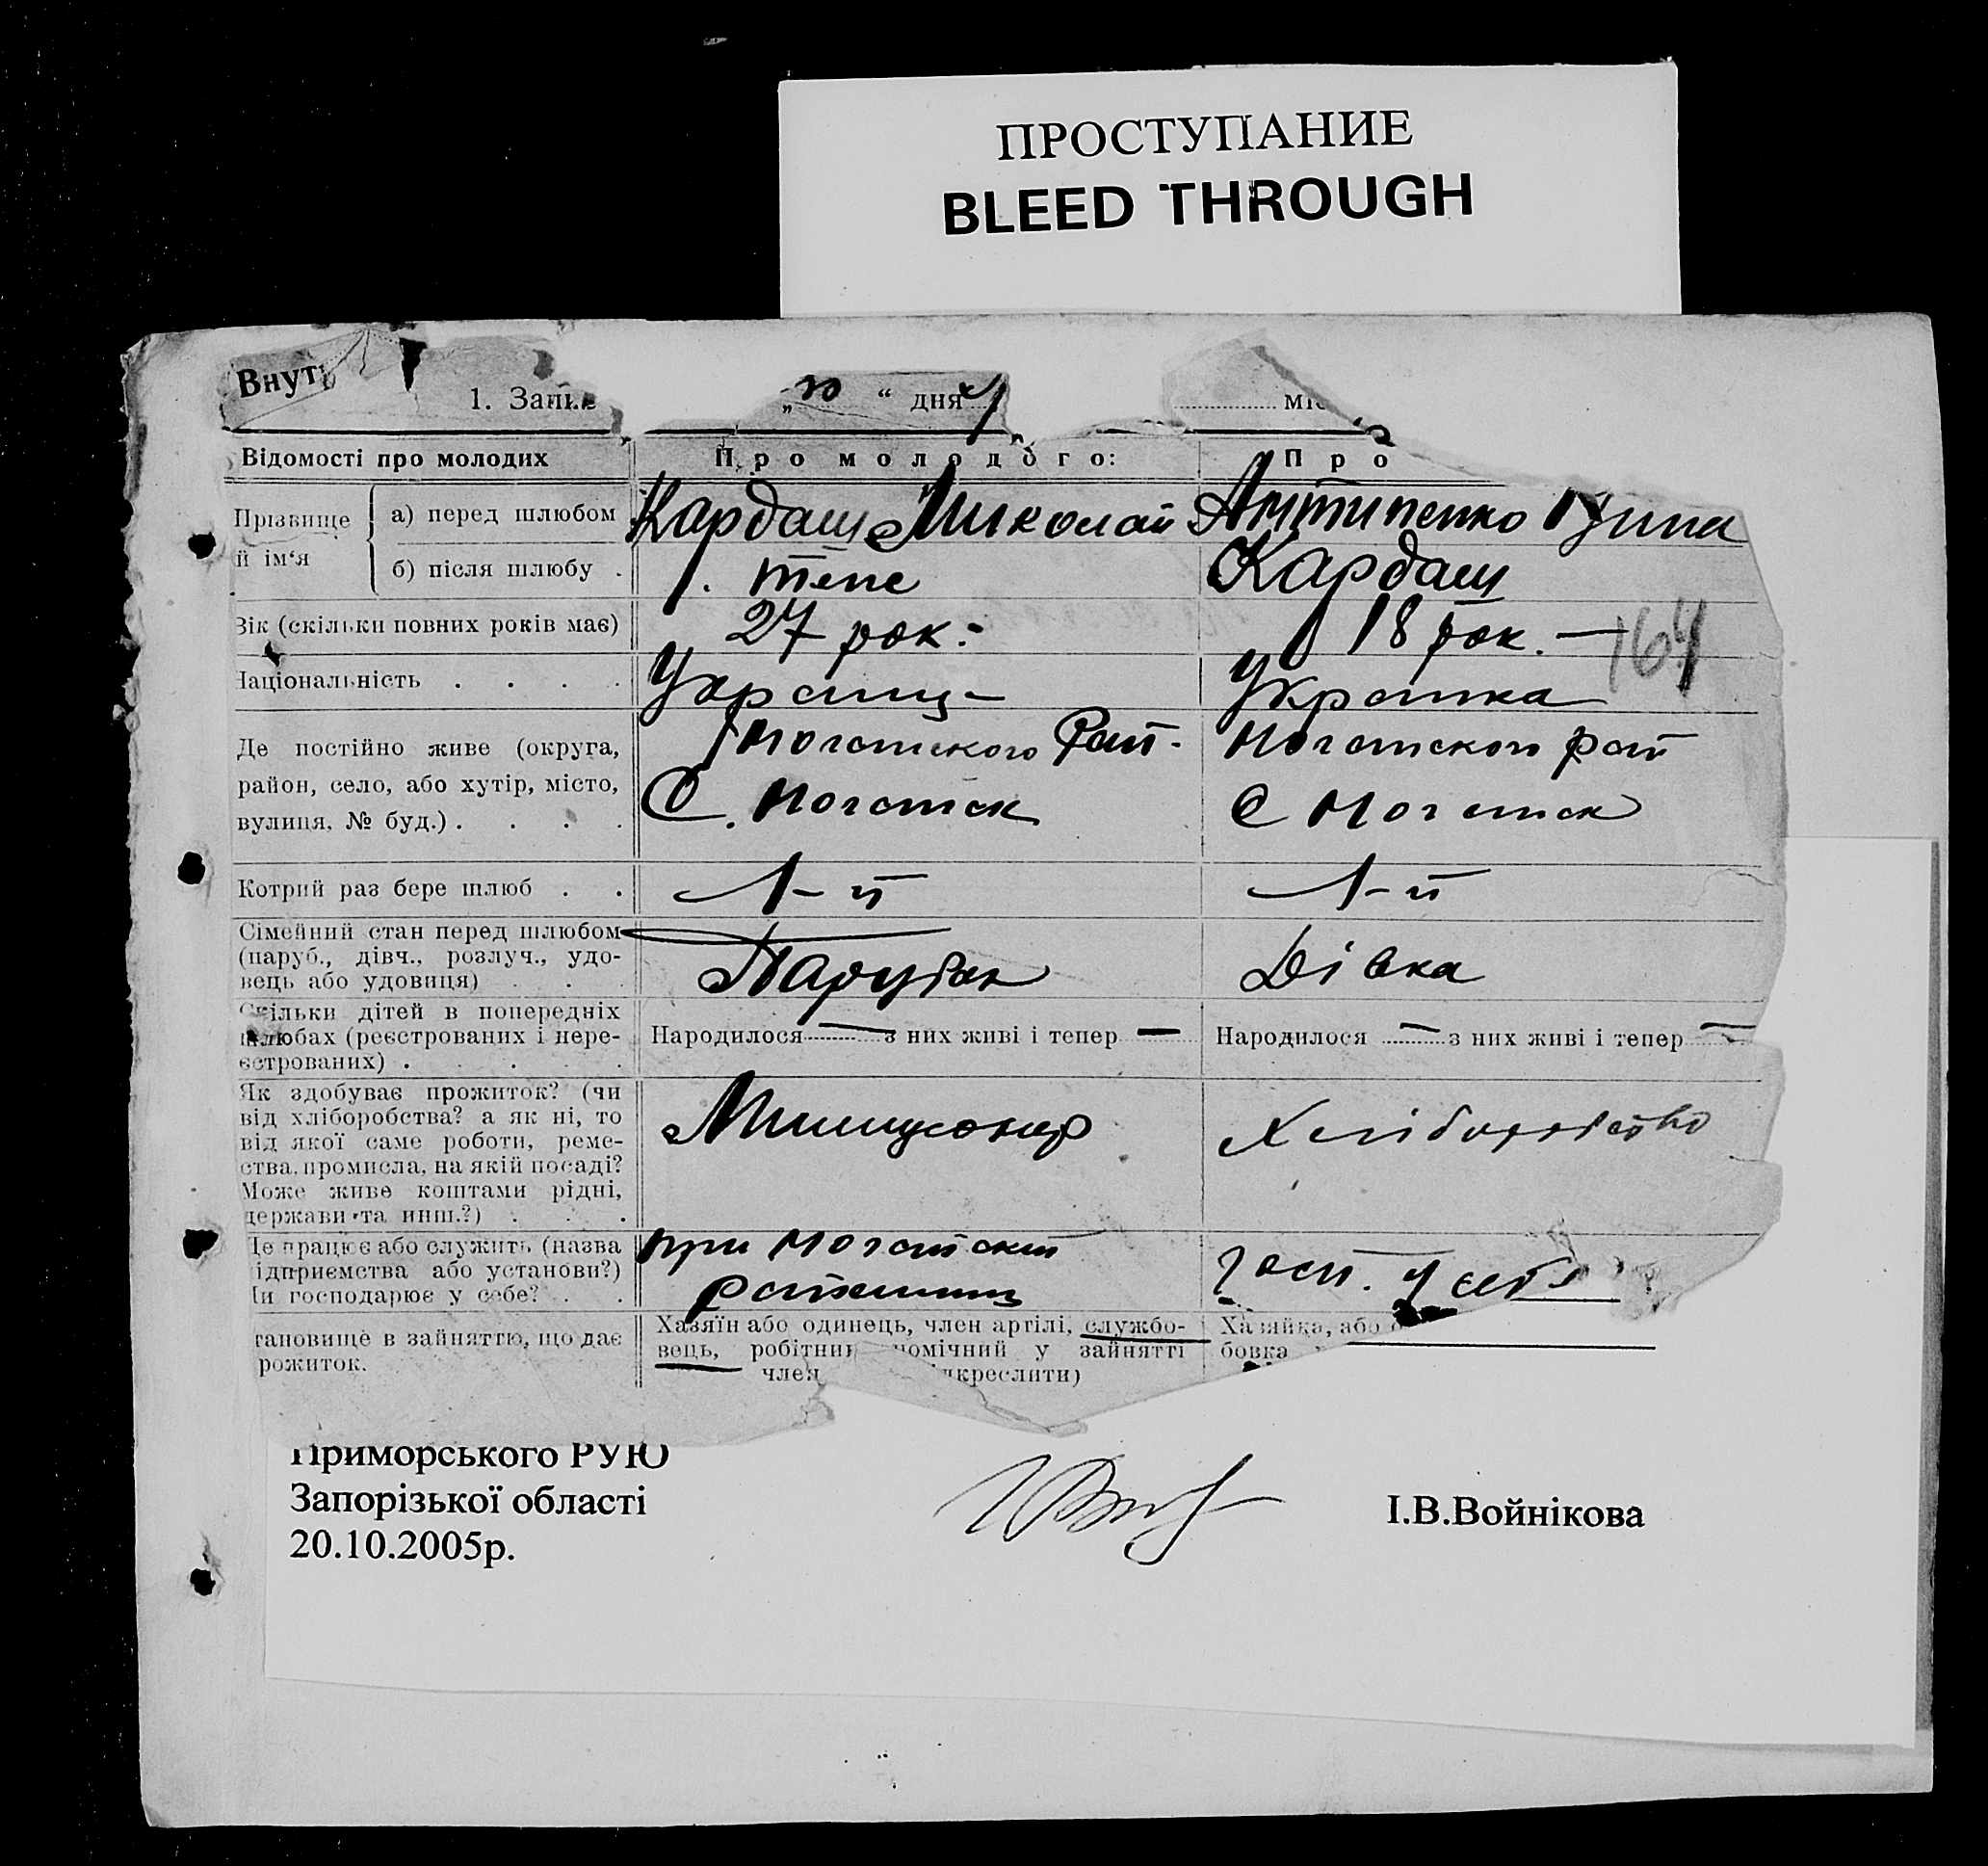 ПРОСТУПАНИЕ
BLEED THROUGH
Внут
1. Запис „30“ дня міс
Відомості про молодих Про молодого: Про
Прізвище й ім‘я а) перед шлюбом Кардаш Миколай Антипенко
б) після шлюбу . теже Кардаш
Вік (скільки повних років має) 27 рок. 18 рок. — 164
Національність . . . . Українц- Українка
Де постійно живе (округа, Ногайского Рай- Ногайского рай
район, село, або хутір, місто, С. Ногайск С Ногайск
вулиця, № буд.) . . . .
Котрий раз бере шлюб . . 1-й 1-й
Сімейний стан перед шлюбом
(паруб., дівч., розлуч., удо- Парубок Дівка
вець або удовиця) . . .
Скільки дітей в попередніх
шлюбах (реєстрованих і нере- Народилося — з них живі і тепер — Народилося — з них живі і тепер —
єстрованих) . . . . .
Як здобуває прожиток? (чи
від хліборобства? а як ні, то Милиционер Хліборобство
від якої саме роботи, реме-
ства, промисла, на якій посаді?
Може живе коштами рідні,
держави та инш.?) . . .
Де працює або служить (назва при Ногайскій
підприємства або установи?) госп. у себе
Чи господарює у себе? . .
тановище в зайняттю, що дає Хазяїн або одинець, член артілі, службо- Хазяйка, або о
рожиток. вець, робітник помічний у зайнятті бовка
член дкреслити)
Приморського РУЮ
Запорізької області І.В.Войнікова
20.10.2005р.